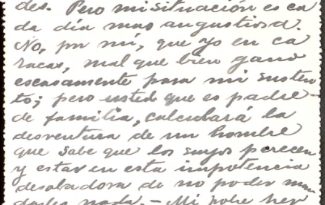 des. Pero mi situación es ca
da día mas angustiosa.
No, por mí, que yo en Ca
racas, mal que bien gano
escasamente para mi susten
to; pero usted que es padre
de familia, calculará la
desventura de un hombre
que sabe que los suyos perecen
y estar en esta impotencia
desoladora de no poder man
darles nada. - Mi pobre her